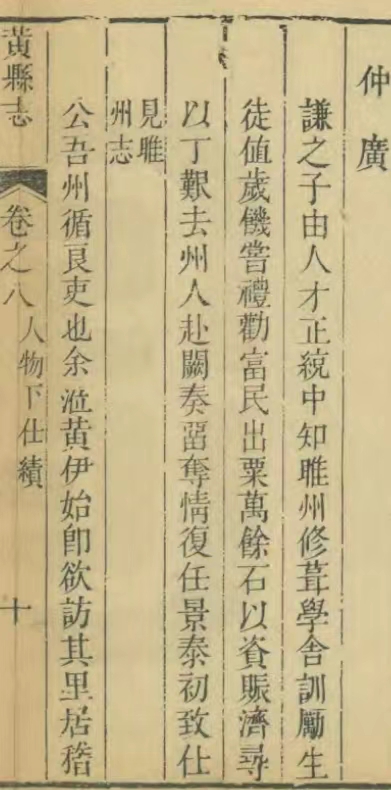 仲廣
謙之子由人才正統中知睢州修葺學舍訓勵生
徒值歲饑嘗禮勸富民出粟萬餘石以資賑濟尋
以丁艱去州人赴闕奏留奪情復任景泰初致仕
見睢
州志
公吾州循良吏也余涖黄伊始卽欲訪其里居稽
黃縣志 卷之八 人物下仕績 十